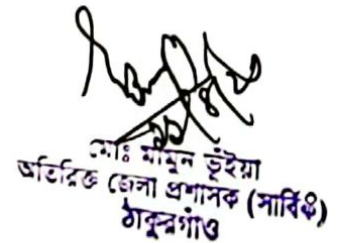 মোঃ মামুন ভূঁইয়া
অতিরিক্ত জেলা প্রশাসক (সার্বিক)
ঠাকুরগাঁও